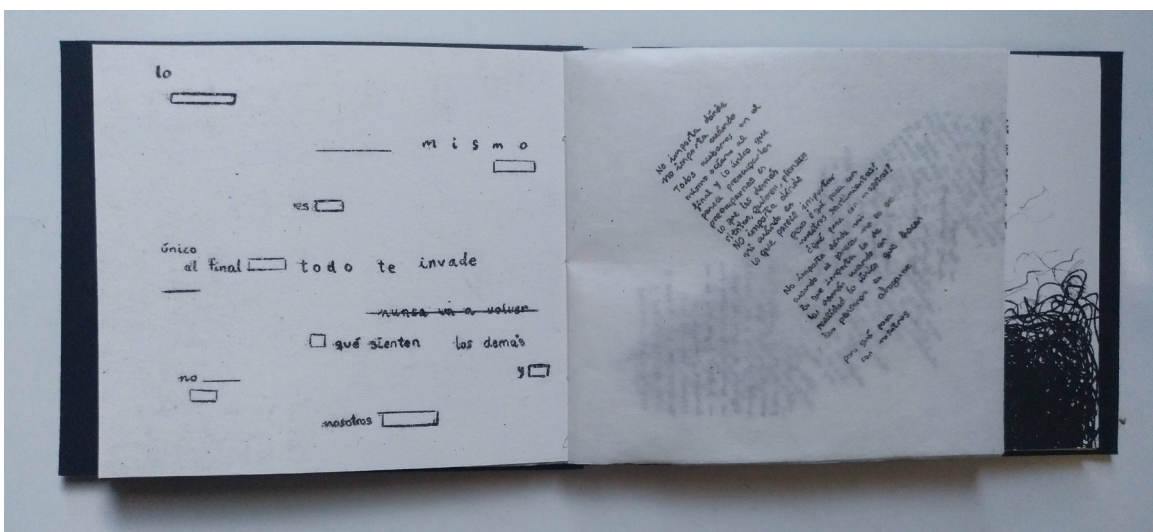 lo
mismo
es
único
al final todo te invade
nunca va a volver
qué sienten los demás
no
y
nosotros
No importa dónde
no importa cuándo
Todos acabamos en el
mismo océano al
final y lo único que
parece preocuparles
preocuparnos es
lo que los demás
sienten, quieren, piensan
NO importa dónde
ni cuándo es
lo que parece importar
pero ¿qué pasa con
nuestros sentimientos?
¿Qué pasa con nosotros?
No importa dónde ni
cuando al parecer no es
lo que importa lo de
los demás cuando en
realidad lo único que hacen
las personas es ahogarme
pero qué pasa
con nosotros